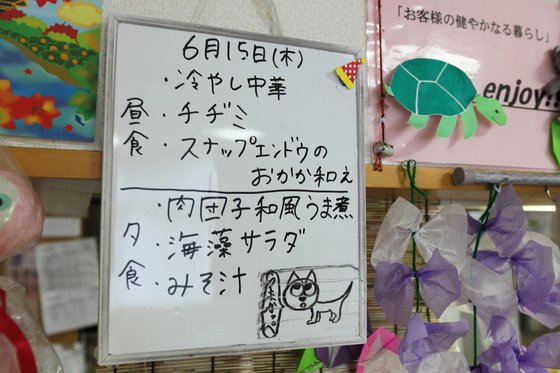 6月15日(木)
・冷やし中華
昼・チヂミ
食・スナップエンドウの
おかか和え
・肉団子和風うま煮
夕・海藻サラダ
食・みそ汁
「お客様の健やかなる暮らし」
enjoy!